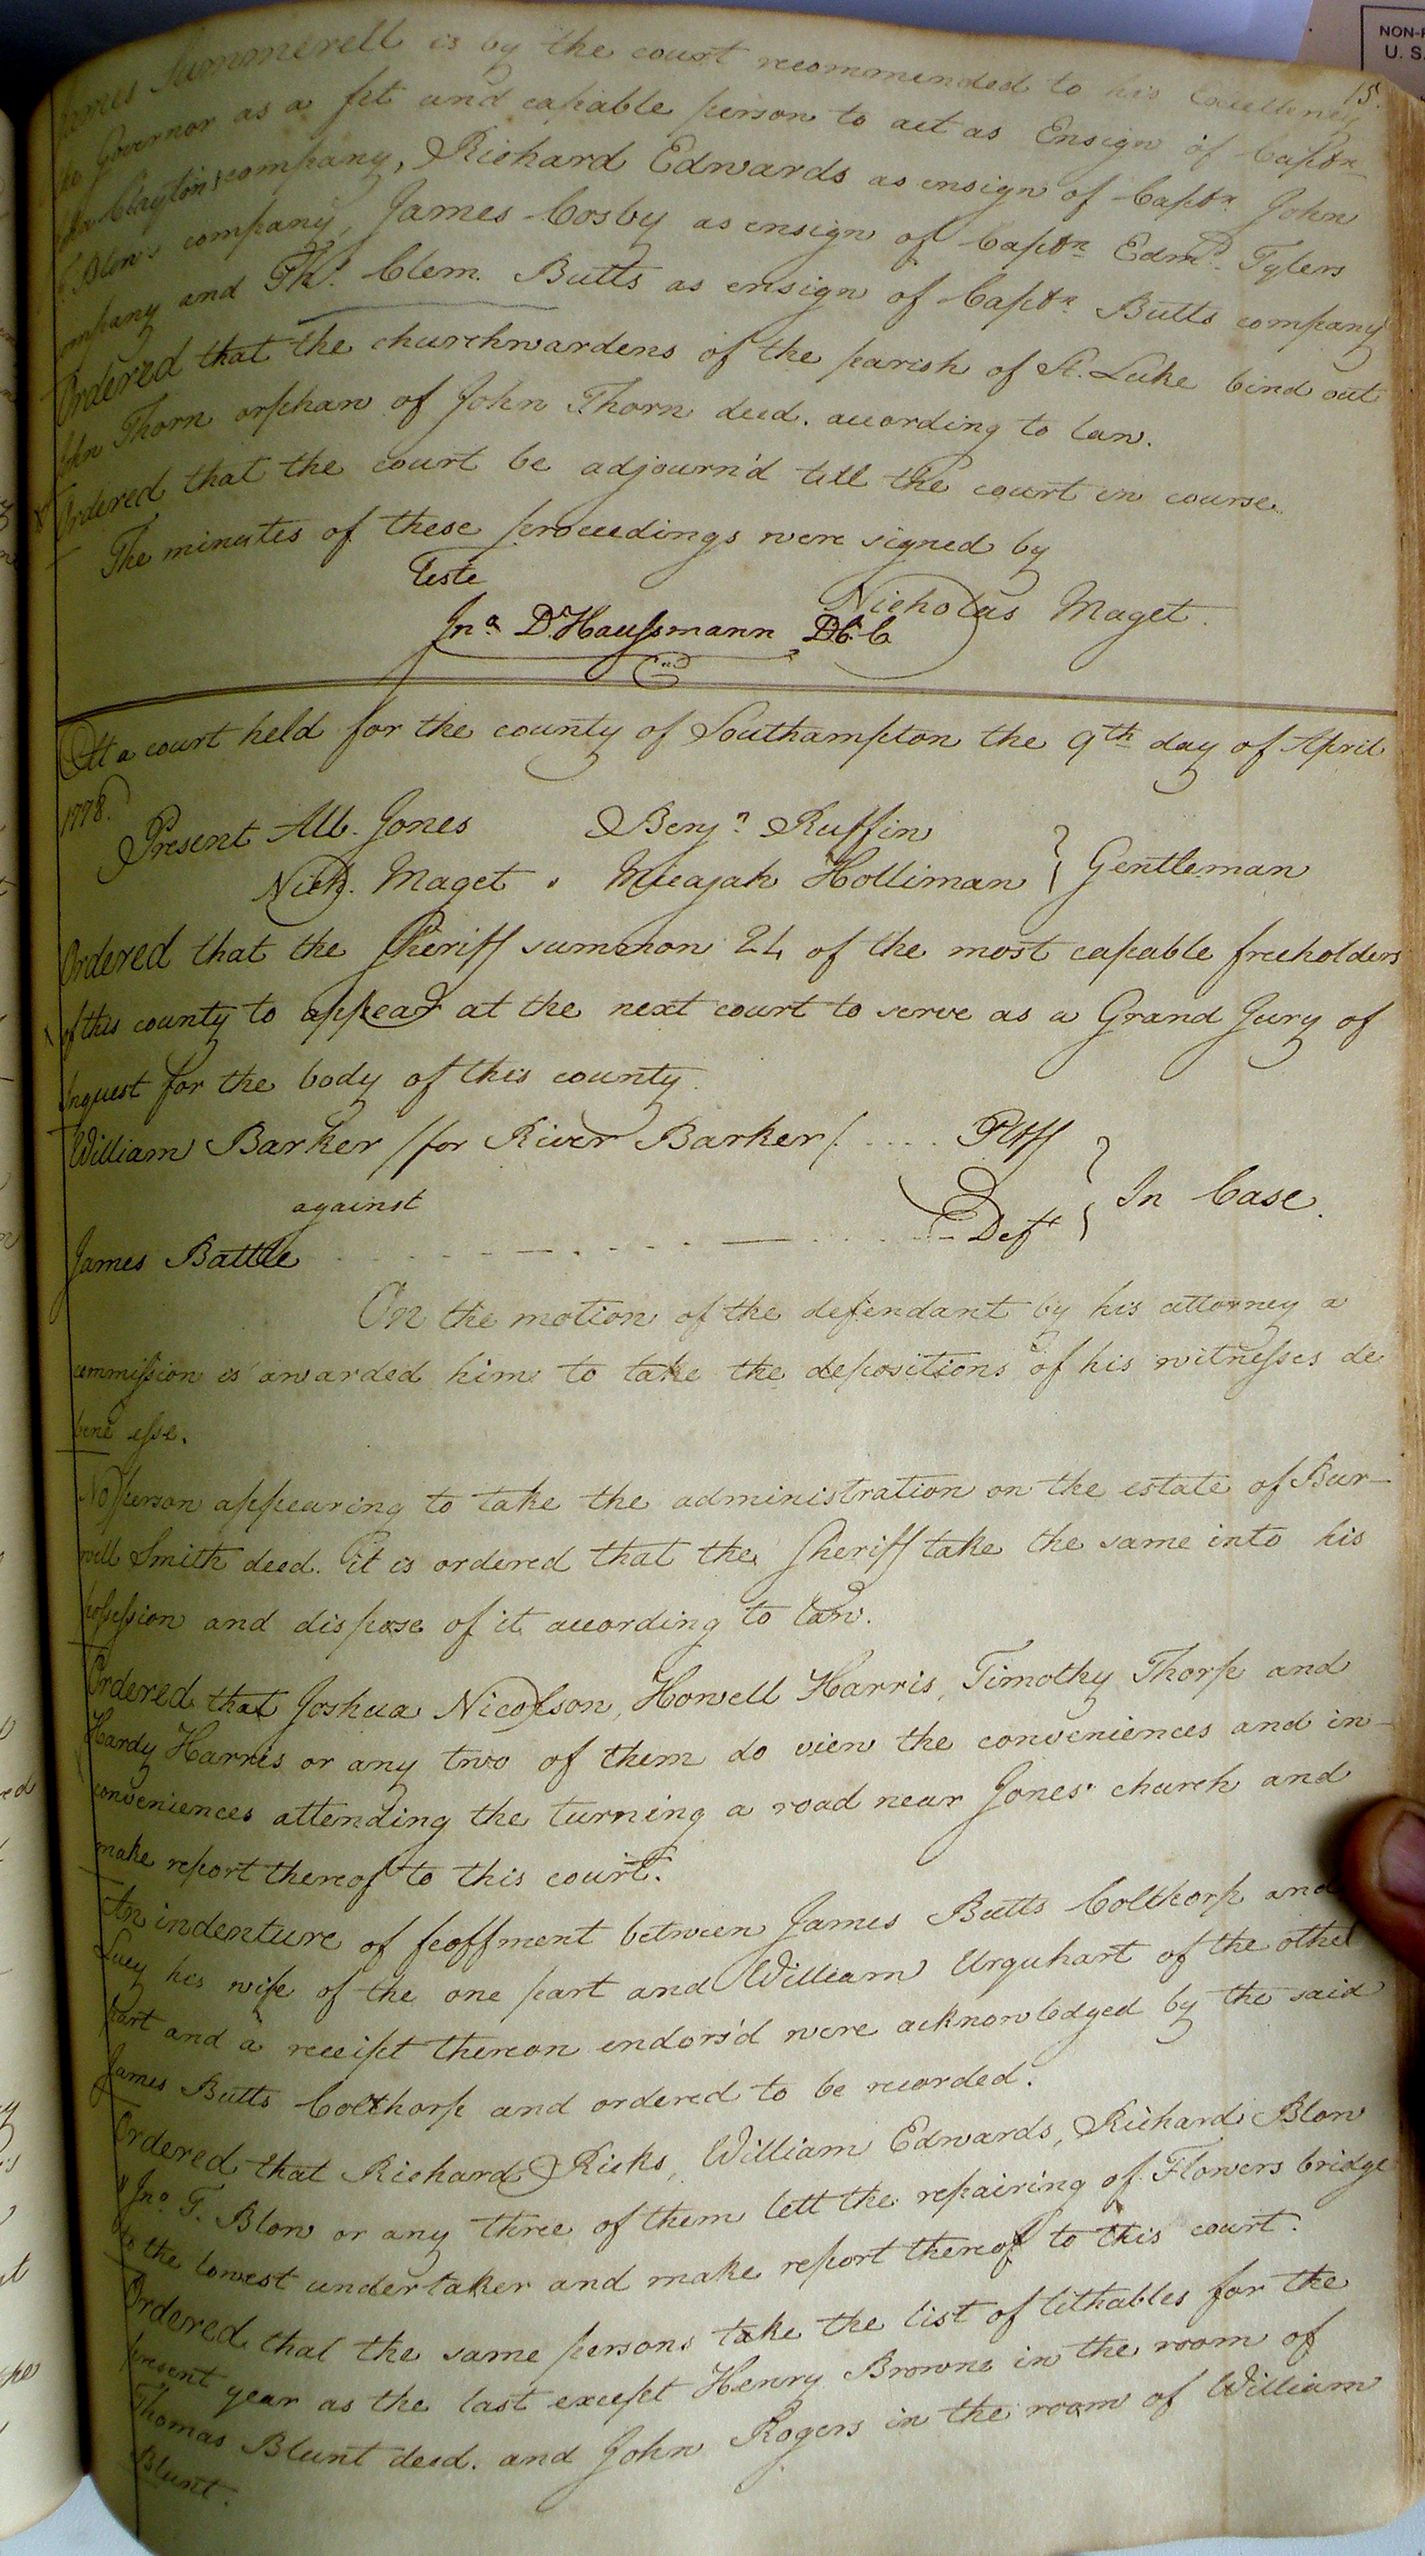 15.
NON-
U. S.
James Summerell is by the court recommended to his Excellency
the Governor as a fit and capable person to act as Ensign of Captn
Claytons company, Richard Edwards as ensign of Captn John
T. Blow's company, James Cosby as ensign of Captn Edmd. Tylers
company and Ths. Clem. Butts as ensign of Captn Butts company
Ordered that the churchwardens of the parish of St. Luke bind out
John Thorn orphan of John Thorn decd. according to law.
Ordered that the court be adjourn'd till the court in course.
The minutes of these proceedings were signed by
Teste
Nicholas Maget.
Jno. D. Haussmann D.C.C
At a court held for the county of Southampton the 9th day of April
1778.
Present Alb. Jones Benjn Ruffin
Nich. Maget. Micajah Holliman } Gentleman
Ordered that the Sheriff summon 24 of the most capable freeholders
of this county to appear at the next court to serve as a Grand Jury of
Inquest for the body of this county.
William Barker /for River Barker/ .... Pltff
against } In Case.
James Battle Deft
On the motion of the defendant by his attorney a
commission is awarded him to take the depositions of his witnesses de
bene esse.
No person appearing to take the administration on the estate of Bur-
well Smith decd. it is ordered that the Sheriff take the same into his
possession and dispose of it according to law.
Ordered that Joshua Nicolson, Howell Harris, Timothy Thorp and
Hardy Harris or any two of them do view the conveniences and in-
conveniences attending the turning a road near Jones' church and
make report thereof to this court.
An indenture of feoffment between James Butts Colthorp and
Lucy his wife of the one part and William Urquhart of the other
part and a receipt thereon endors'd were acknowledged by the said
James Butts Colthorp and ordered to be recorded.
Ordered that Richard Ricks, William Edwards, Richard Blow
& Jno. T. Blow or any three of them lett the repairing of Flowers bridge
to the lowest undertaker and make report thereof to this court.
Ordered that the same persons take the list of tithables for the
present year as the last except Henry Browne in the room of
Thomas Blunt decd. and John Rogers in the room of William
Blunt.